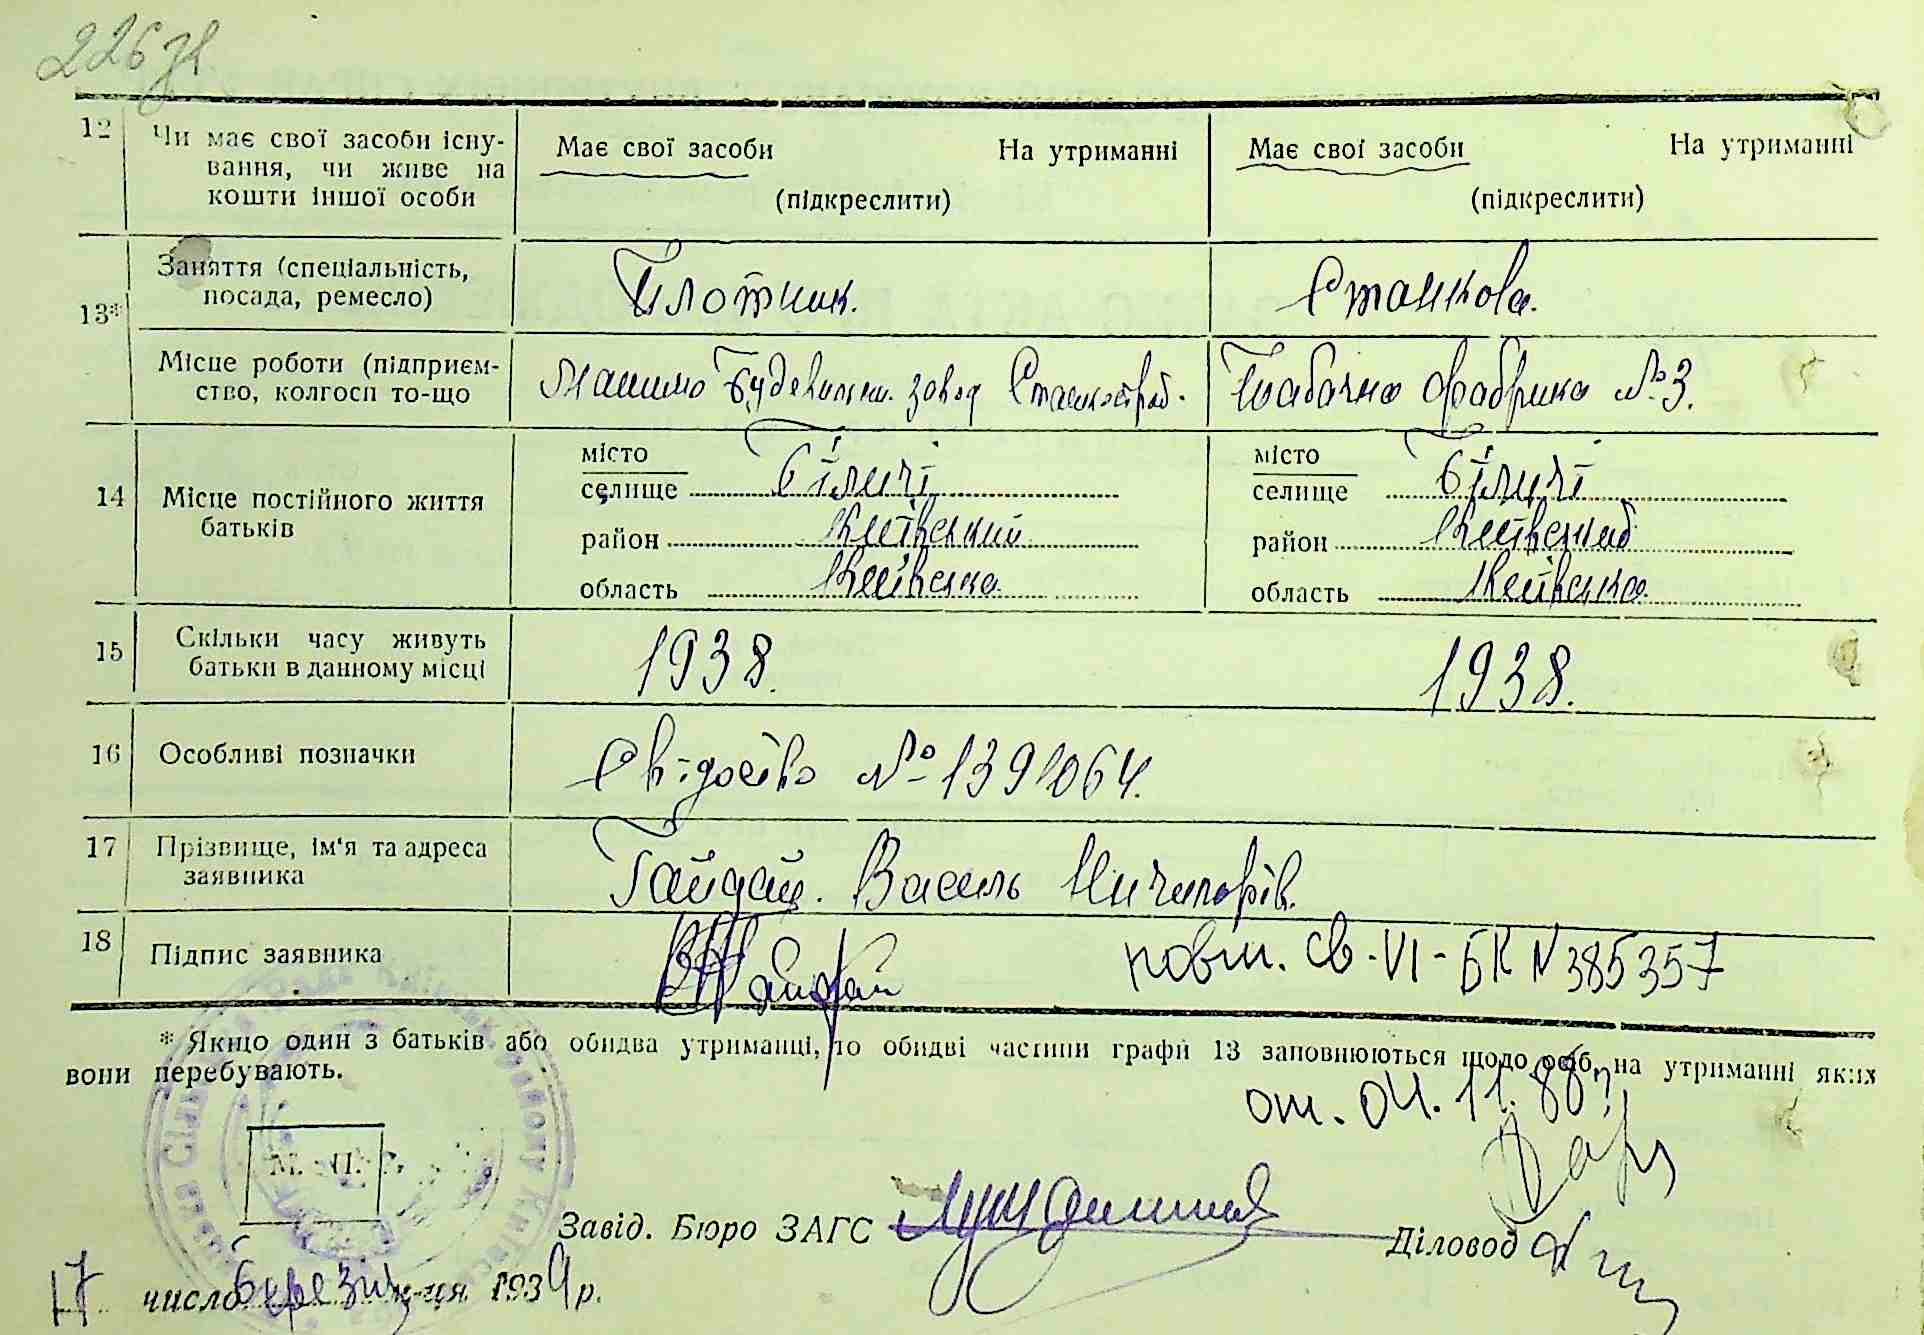 226 зв
12 Чи має свої засоби існу-
вання, чи живе на
кошти іншої особи
Має свої засоби На утриманні
(підкреслити)
Має свої засоби На утриманні
(підкреслити)
13* Заняття (спеціальність,
посада, ремесло)
Плотник.
Станкова.
Місце роботи (підприєм-
ство, колгосп то-що
Машино Будевильни. завод
Табачна фабрика №3.
14 Місце постійного життя
батьків
місто
селище Біличі
район Київський
область Київська
місто
селище Біличі
район Київский
область Київська
15 Скільки часу живуть
батьки в данному місці
1938.
1938.
16 Особливі позначки
Свідоство № 1391064.
17 Прізвище, ім'я та адреса
заявника
Гайдай. Василь Ничипорів.
18 Підпис заявника
Гайдай
повт. св-VI-БК N 385357
* Якщо один з батьків або обидва утриманці, то обидві частини графи 13 заповнюються щодо осіб, на утриманні яких
вони перебувають.
от. 04.11.88г
М. П.
Завід. Бюро ЗАГС
Діловод
17 число Березня м-ця 1939 р.